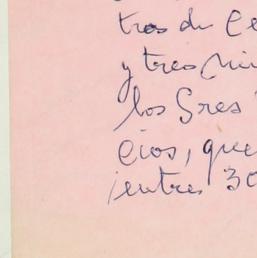 tros de Ce
y tres
los Sres
cios, que
entre 30